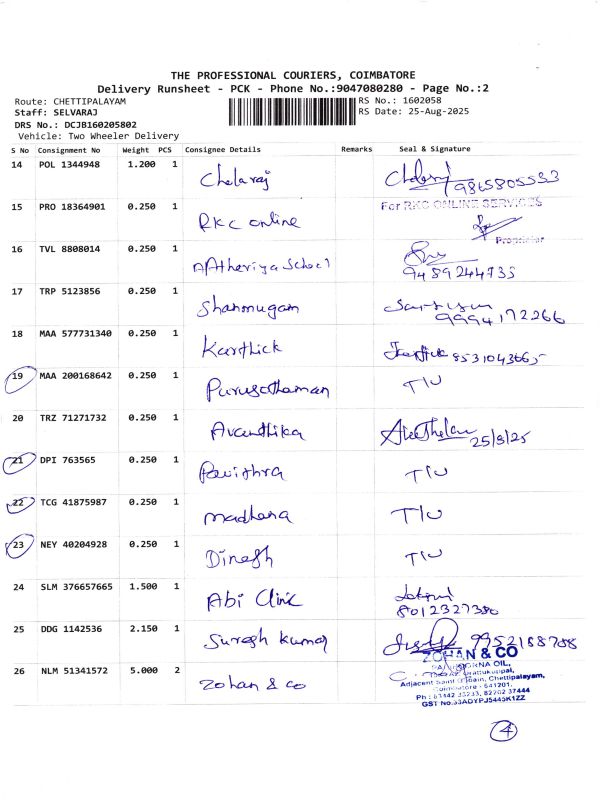 THE PROFESSIONAL COURIERS, COIMBATORE
Delivery Runsheet - PCK - Phone No.:9047080280 - Page No.:2
Route: CHETTIPALAYAM RS No.: 1602058
Staff: SELVARAJ RS Date: 25-Aug-2025
DRS No.: DCJB160205802
Vehicle: Two Wheeler Delivery
S No Consignment No Weight PCS Consignee Details Remarks Seal & Signature
14 POL 1344948 1.200 1 Chelaraj 9865805533
15 PRO 18364901 0.250 1 RKC online For RKC ONLINE SERVICES
Proprietor
16 TVL 8808014 0.250 1 School
9489244735
17 TRP 5123856 0.250 1 Shanmugam
9994172266
18 MAA 577731340 0.250 1 Karthick
19 MAA 200168642 0.250 1 Purusothaman T/U
20 TRZ 71271732 0.250 1 Avanthika 25/8/25
21 DPI 763565 0.250 1 Pavithra T/U
22 TCG 41875987 0.250 1 madhana T/U
23 NEY 40204928 0.250 1 Dinesh T/U
24 SLM 376657665 1.500 1 Abi Clinic
8012327380
25 DDG 1142536 2.150 1 Suresh kumar 9952188788
26 NLM 51341572 5.000 2 Zohan & co ZOHAN & CO
OIL,
Adjacent Chettipalayam,
Coimbatore - 641201,
Ph : 82202 37444
GST No.33ADYPJ5445K1ZZ
4